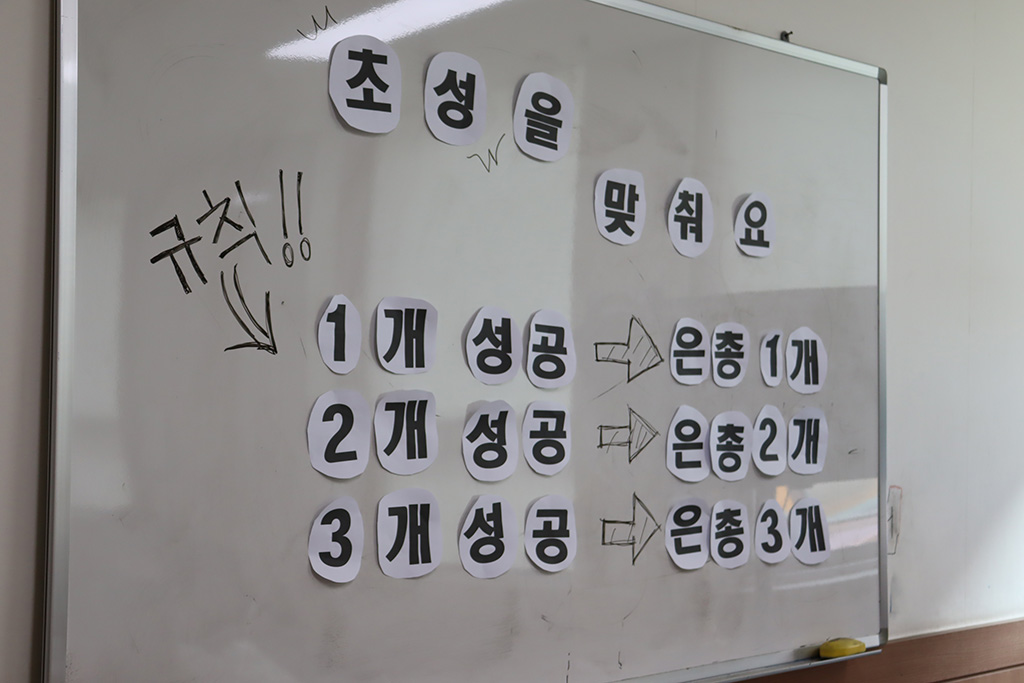 초셩을
맞춰요
규칙!!
1개 성공 ⇨ 은총 1개
2개 성공 ⇨ 은총 2개
3개 성공 ⇨ 은총 3개